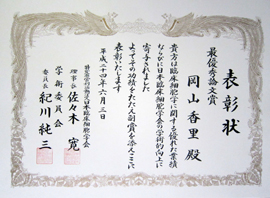 表彰状
最優秀論文賞
岡山香里 殿
貴方は臨床細胞学に関する優れた業績
ならびに日本臨床細胞学会の学術的向上に
寄与されました
よってその功績をたたえ副賞を添えここに
表彰いたします
平成二十四年六月三日
日本臨床細胞学会
理事長 佐々木 寛
学術委員会
委員長 紀川純三